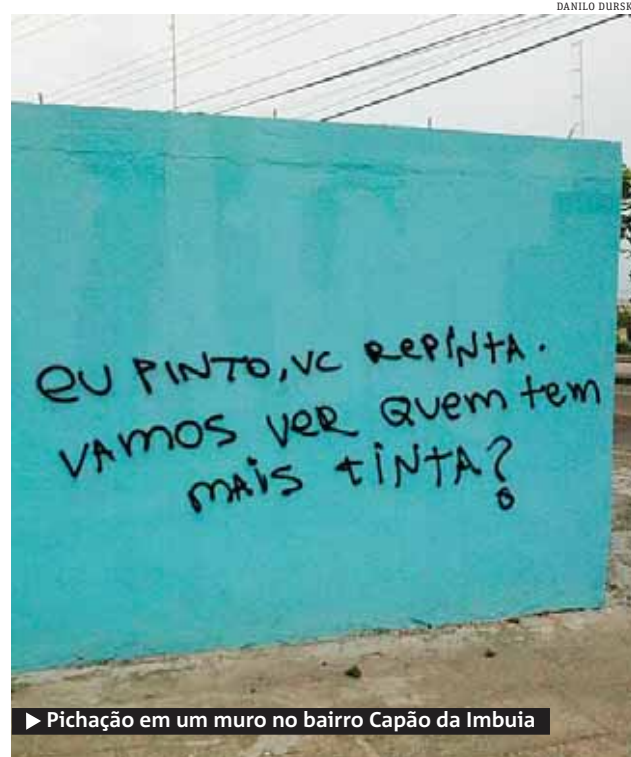 DANILO DURSK
EU PINTO, VC REPINTA.
VAMOS VER QUEM TEM
MAIS TINTA?
▶ Pichação em um muro no bairro Capão da Imbuia